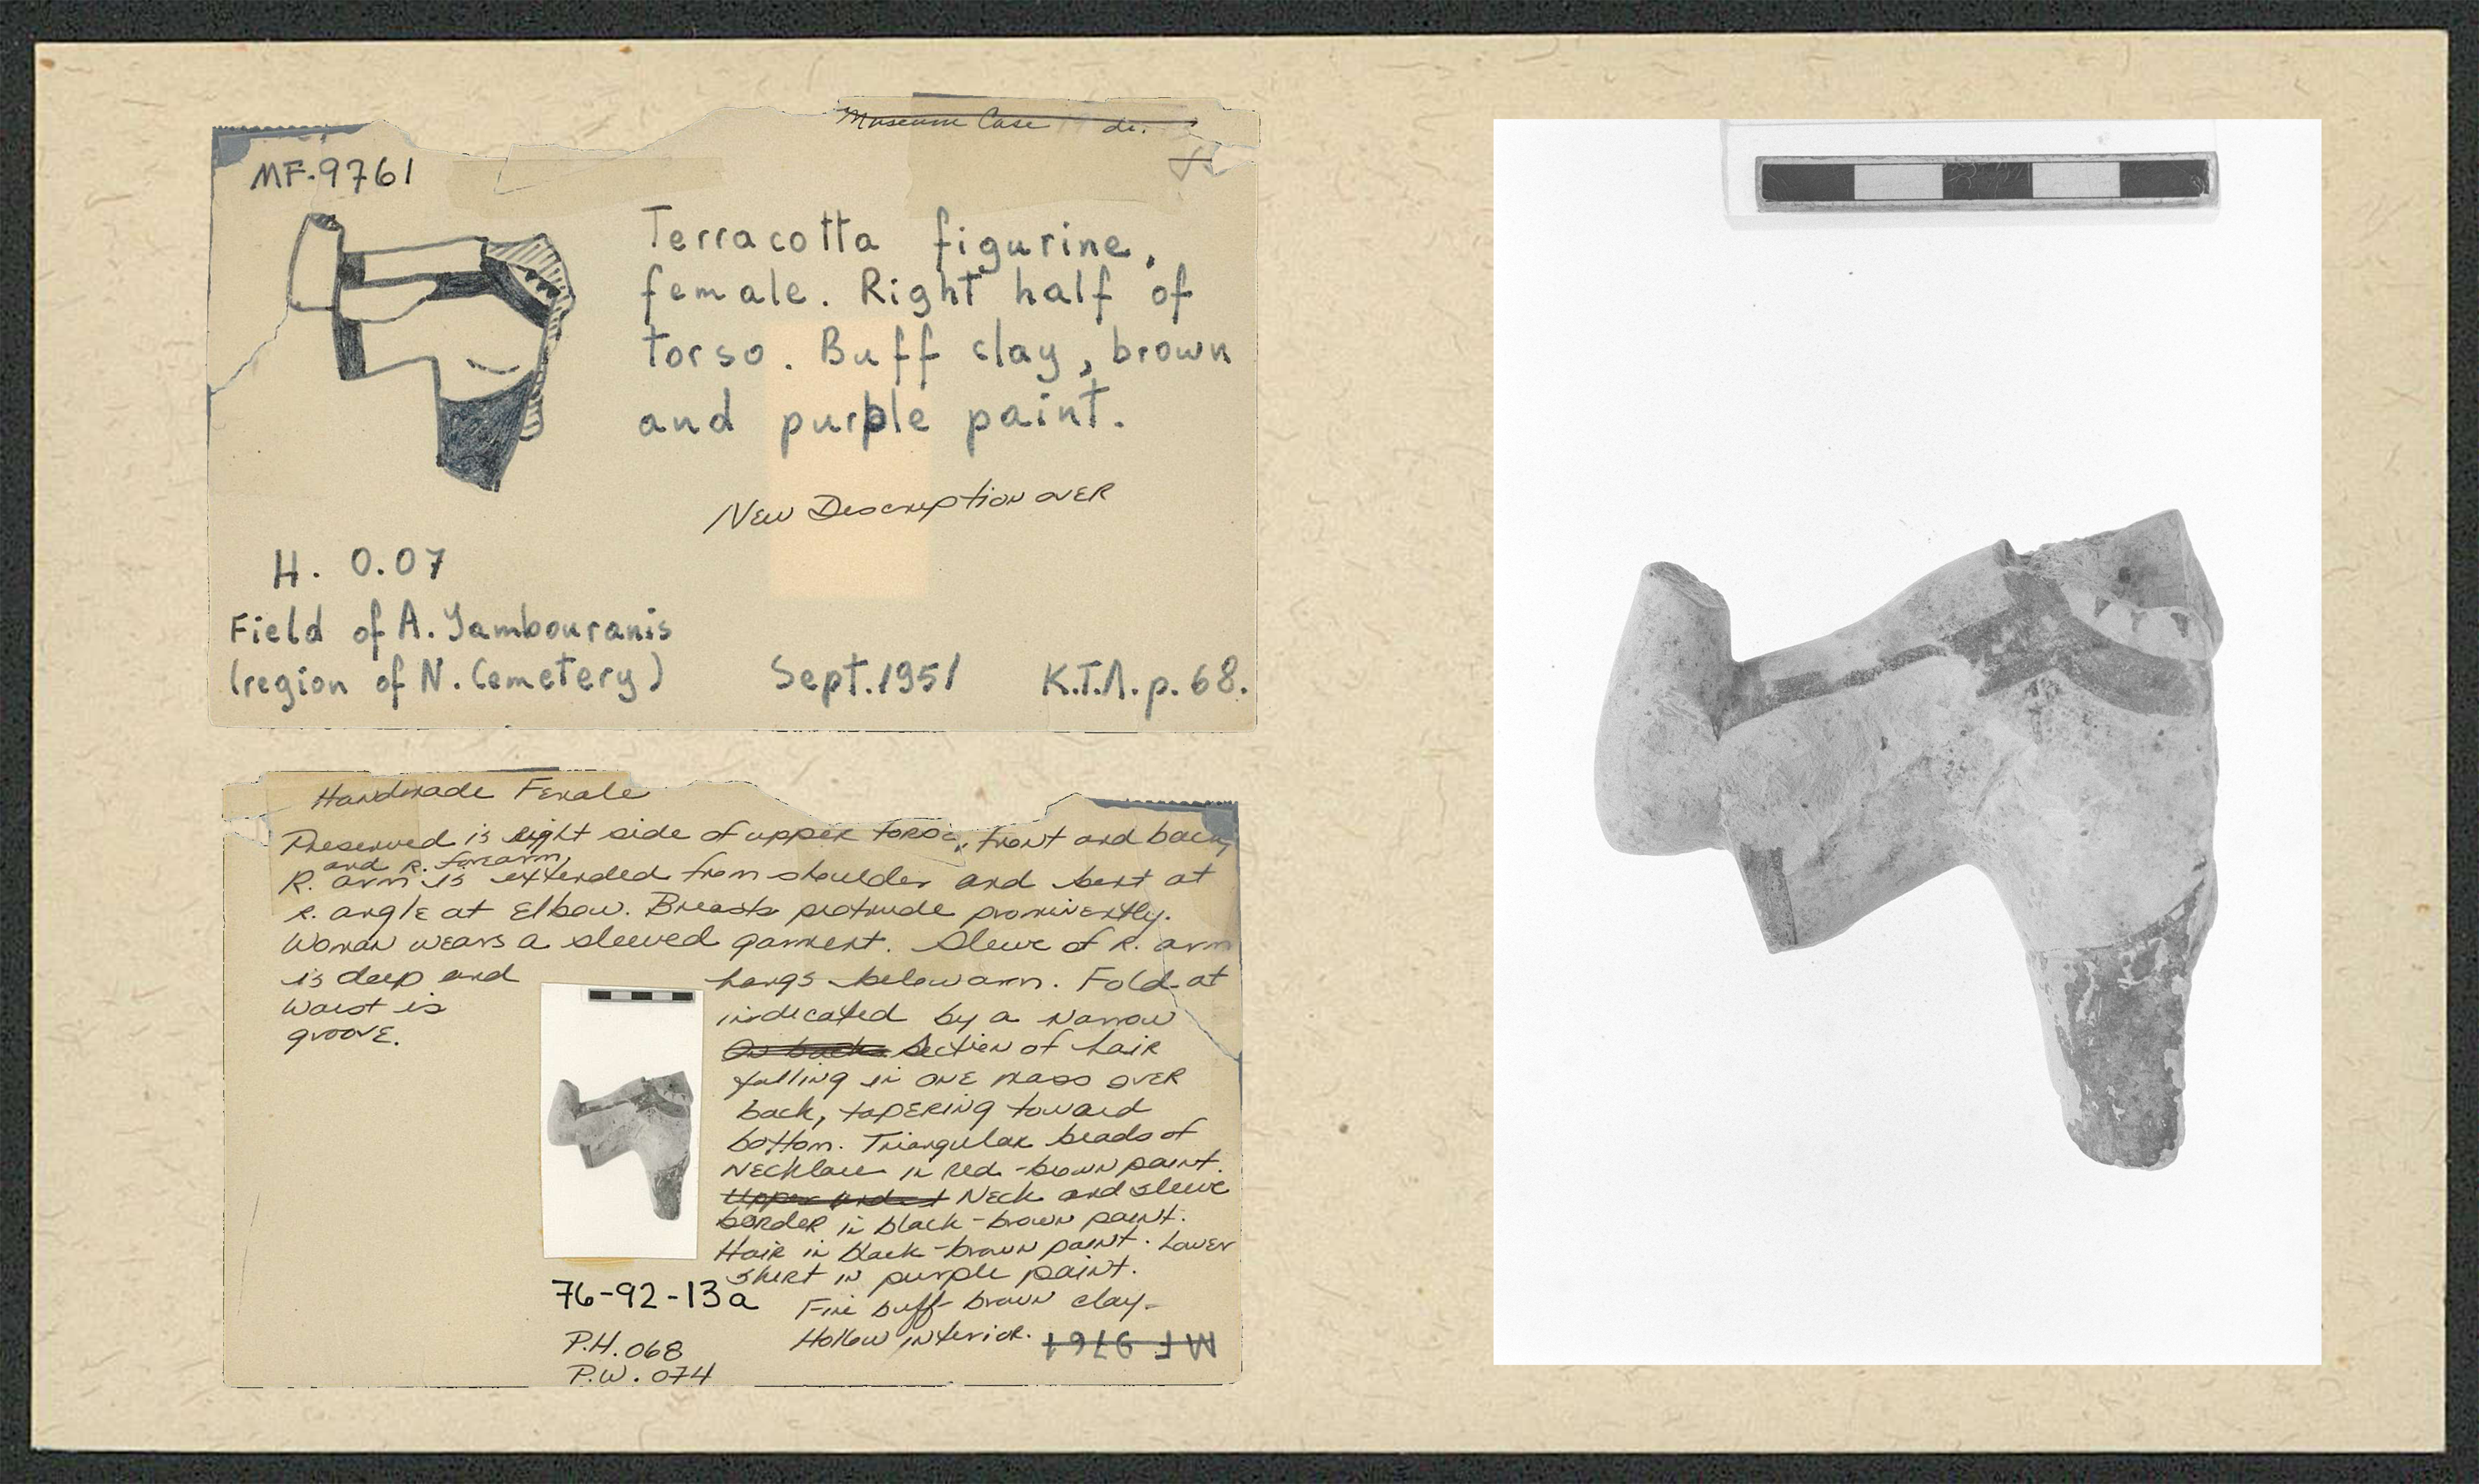 Museum Case de.
MF-9761
Terracotta figurine,
female. Right half of
torso. Buff clay, brown
and purple paint.
New Description over
H. 0.07
Field of A. Yambouranis
(region of N. Cemetery) Sept. 1951 K.T.Λ. p. 68.
Handmade Female
Preserved is right side of upper torso, front and back,
and R. forearm,
R. arm is extended from shoulder and bent at
r. angle at elbow. Breasts protrude prominently.
Woman wears a sleeved garment. Sleeve of R. arm
is deep and hangs below arm. Fold at
waist is indicated by a narrow
groove. On back Section of hair
falling in one mass over
back, tapering toward
bottom. Triangular beads of
necklace in red-brown paint.
Neck and sleeve
border in black-brown paint.
Hair in black-brown paint. Lower
skirt in purple paint.
76-92-13a Fine buff-brown clay.
P.H. 068 Hollow interior. MF 9761
P.W. 074